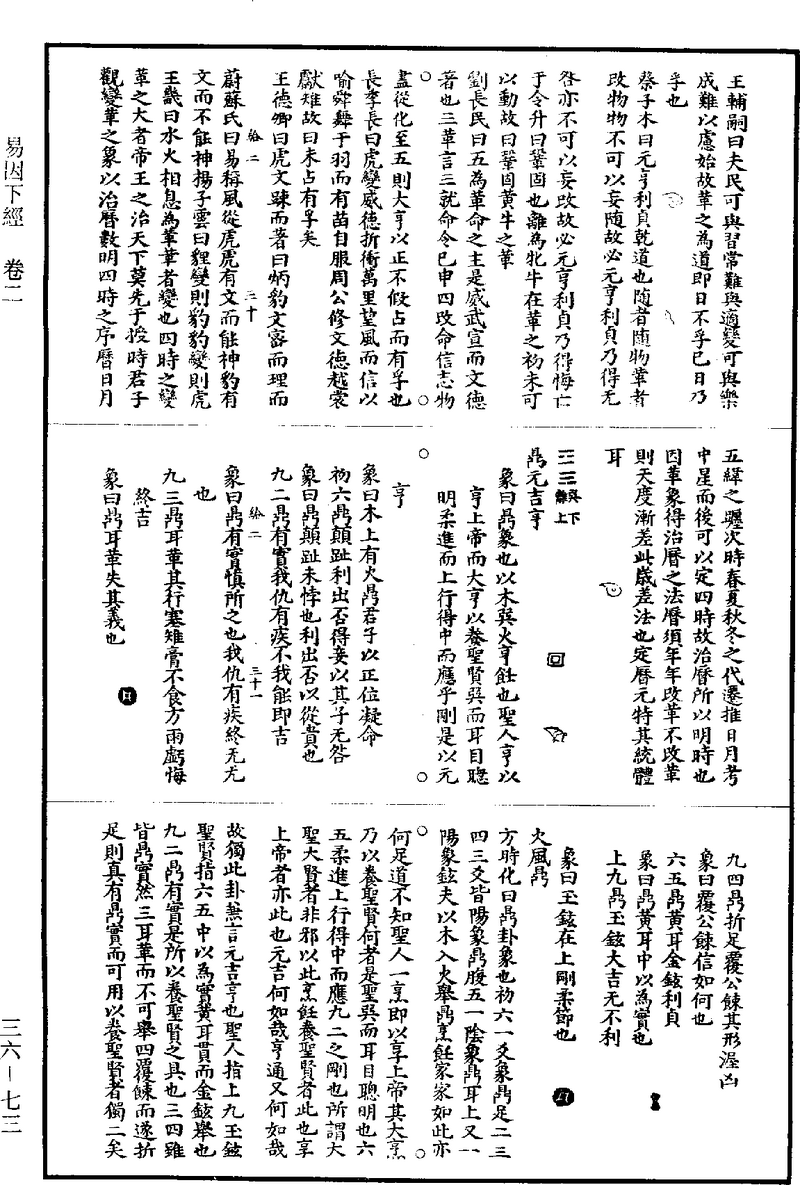 王輔嗣曰夫民可與習常難與適變可與樂
成難以慮始故革之為道即日不孚已日乃
孚也
蔡子木曰元亨利貞乾道也隨者隨物革者
改物物不可以妄隨故必元亨利貞乃得无
咎亦不可以妄改故必元亨利貞乃得悔亡
于令升曰鞏固也離為牝牛在革之初未可
以動故曰鞏固黃牛之革
劉長民曰五為革命之主是威武宣而文德
著也三革言三就命令已申四改命信志物
盡從化至五則大亨以正不假占而有孚也
長李長曰虎變威德折衝萬里望風而信以
喻舜舞干羽而有苗自服周公修文德越裳
獻雉故曰未占有孚矣
王德卿曰虎文踈而著曰炳豹文宻而理而
蔚蘇氏曰易稱風從虎虎有文而能神豹有
文而不能神揚子雲曰貍變則豹豹變則虎
王畿曰水火相息為革革者變也四時之變
革之大者帝王之治天下莫先于授時君子
觀變革之象以治曆數明四時之序曆日月
五緯之躔次時春夏秋冬之代遷推日月考
中星而後可以定四時故治曆所以明時也
因革象得治曆之法曆須年年改革不改革
則天度漸差此歲差法也定曆元特其統體
耳
巽下
離上
鼎元吉亨
彖曰鼎象也以木巽火亨飪也聖人亨以
亨上帝而大亨以養聖賢巽而耳目聰
明柔進而上行得中而應乎剛是以元
亨
象曰木上有火鼎君子以正位凝命
初六鼎顛趾利出否得妾以其子无咎
象曰鼎顛趾未悖也利出否以從貴也
九二鼎有實我仇有疾不我能即吉
象曰鼎有實慎所之也我仇有疾終无尤
也
九三鼎耳革其行塞雉膏不食方雨虧悔
終吉
象曰鼎耳革失其義也
九四鼎折足覆公餗其形渥凶
象曰覆公餗信如何也
六五鼎黃耳金鉉利貞
象曰鼎黃耳中以為實也
上九鼎玉鉉大吉无不利
象曰玉鉉在上剛柔節也
火風鼎
方時化曰鼎卦象也初六一爻象鼎足二三
四三爻皆陽象鼎腹五一陰象鼎耳上又一
陽象鉉夫以木入火舉鼎烹飪家家如此亦
何足道不知聖人一烹即以享上帝其大烹
乃以養聖賢何者是聖巽而耳目聰明也六
五柔進上行得中而應九二之剛也所謂大
聖大賢者非邪以此烹飪養聖賢者此也享
上帝者亦此也元吉何如哉亨通又何如哉
故獨此卦無言元吉亨也聖人指上九玉鉉
聖賢指六五中以為實黃耳貫而金鉉舉也
九二鼎有實是所以養聖賢之具也三四雖
皆鼎實然三耳革而不可舉四覆餗而遂折
足則真有鼎實而可用以養聖賢者獨二矣
易因下經 卷二
三六－七三